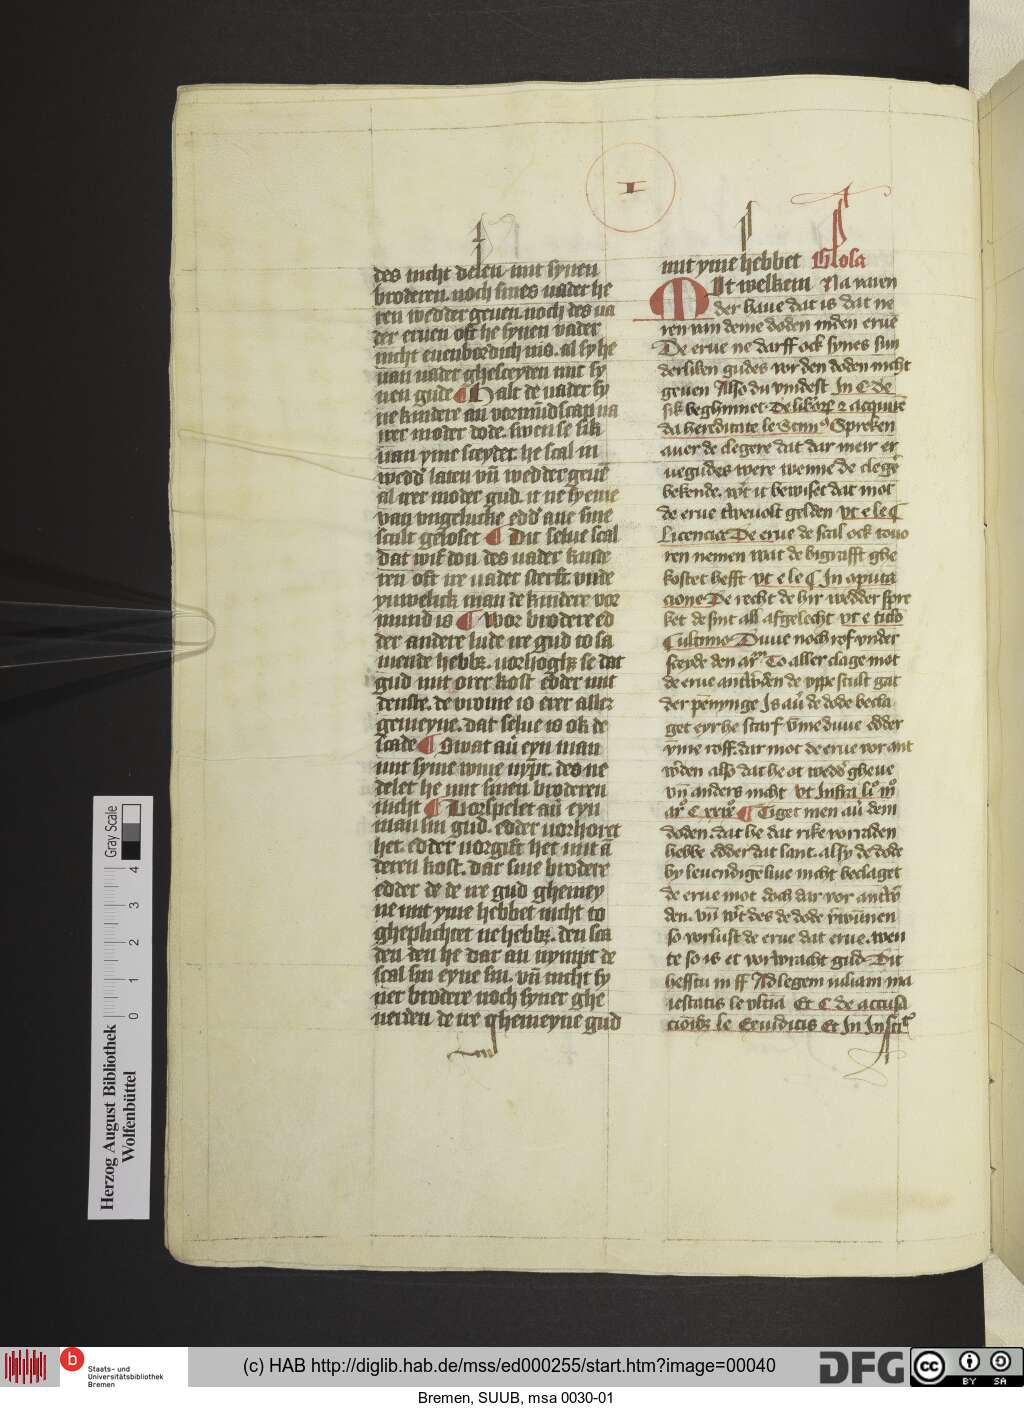 I
des nicht delen mit synen
broderen. noch sines vader he
ren wedder geuen. noch des va
der eruen oft he synen vader
nicht euenbordich nis. al sy he
van vader ghesceyden mit sy
nen gude ¶ Halt de vader sy
ne kindere an vormūdscap na
irer moder dode. swen se sik
van yme sceydet. he scal in
wedd' laten vn̄ wedder geuē
al irer moder gud. it ne sy eme
van vngelucke edd' ane sine
scult geloset ¶ Dit selue scal
dat wif don des vader kinde
ren oft ire vader sterft. vnde
yuwelick man de kindere vor
mund is ¶ Wor brodere ed
der andere lude ire gud to sa
mende hebbꝫ. vorhoghꝫ se dat
gud mit orer kost edder mit
denste. de vrome is erer allꝫ
gemeyne. dat selue is ok de
scade ¶ Swat au̅ eyn man
mit syme wiue nympt. des ne
delet he mit sinen broderen
nicht ¶ Vorspelet au̅ eyn
man sin gud. edder vorhoret
het. edder vorgift het mit ā
deren kost. dar sine brodere
edder de de ire gud ghemey
ne mit yme hebbet nicht to
gheplichtet ne hebbꝫ. den sca
den den he dar an nympt de
scal sin eyne sin. vn̄ nicht sy
ner brodere noch syner ghe
nerden de ire ghemeyne gud
mit yme hebbet Glosa
Mit welkem Na varen
der haue dat is dat ne
ren van deme doden in den erue
De erue ne darff ock synes sun
derliken gudes vor den doden nicht
geuen Also du vindest In C de
da hereditate le Scim9 Spreken
auer de clegere dat dar meir er
uegudes were wenne de clegē
bekende. wͤt it bewiset dat mot
de erue twevolt gelden vt e le C
Licencia De erue de scal ock touo
ren nemen wat de bigrafft ghe
kostet hefft vt e le C In aputa
cione De recht de hir wedder spre
ket de sint all afgelecht vt e titlo
C ultimo Duue noch rof vnder
To aller clage mot
de erue antwͤden de vppe scult gat
der pēnynge Is au̅ de dode becla
get eyr he starf vme duue edder
yme roff. dar mot de erue vor ant
wͤden also dat he ot wedd' gheue
vn̄ anders nicht vt Infra
¶ Tiget men au̅ dem
doden. dat he dat rike vorraden
hebbe edder dat lant. al sy de dode
by leuendigē liue nicht beclaget
de erue mot doch dar vor antwͤ
den. vn̄ wͤt des de dode vͤwūnen
so vorlust de erue dat erue. wen
te so is et vorwracht gud Dit
heffstu in ff Ad legem iuliam ma
iestatis le vltīa Et C de accusa
cioībꝫ le Eruditis Et In Insti
Gray Scale
0 1 2 3 4
Herzog August Bibliothek
Wolfenbüttel
b
Staats- und
Universitätsbibliothek
Bremen
(c) HAB http://diglib.hab.de/mss/ed000255/start.htm?image=00040
DFG
cc
BY SA
Bremen, SUUB, msa 0030-01